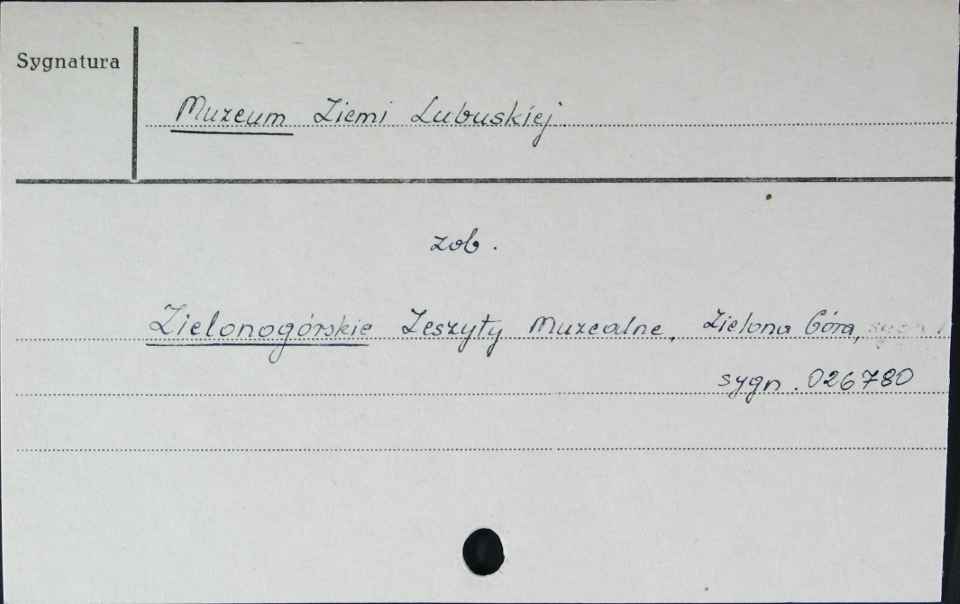 Sygnatura
Muzeum Ziemi Lubuskiej.
zob.
Zielonogórskie Zeszyty Muzealne, Zielona Góra,
sygn. 026780